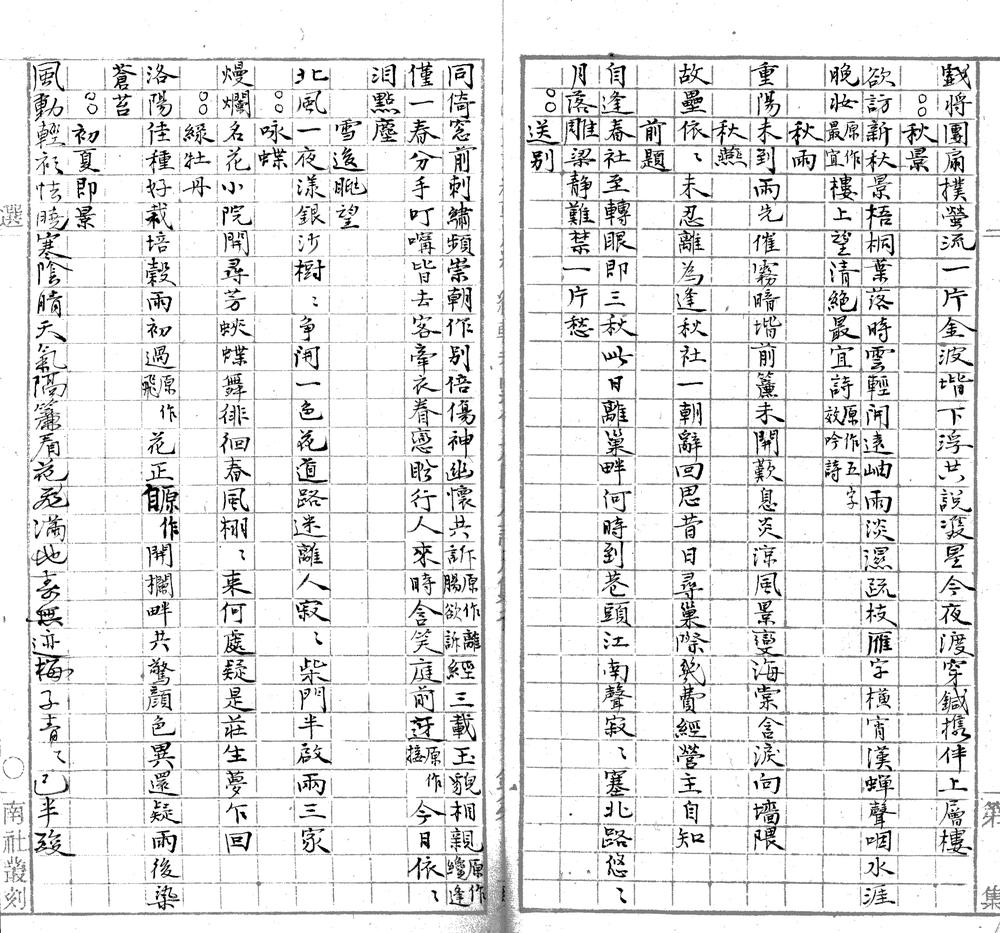 戲將團扇撲螢流一片金波堦下浮共說雙星今夜渡穿鍼攜伴上層樓
秋景
欲訪新秋景梧桐葉落時雲輕開遠岫雨淡濕疏枝雁字橫宵漢蟬聲咽水涯
晚妝原作最宜樓上望清絕最宜詩原作五字效吟詩
秋雨
重陽未到雨先催霧暗堦前簾未開歎息炎涼風景變海棠含淚向墻隈
秋燕
故壘依〻未忍離為逢秋社一朝辭回思昔日尋巢際幾費經營主自知
前題
自逢春社至轉眼即三秋此日離巢畔何時到巷頭江南聲寂〻塞北路悠〻
月落雕梁静難禁一片愁
送别
同倚窓前刺繡頻崇朝作别倍傷神幽懷共訴原作離腸欲訴經三載玉貌相親原作纔逢
僅一春分手叮嚀皆去客牽衣眷戀盼行人來時含笑庭前迓原作接今日依〻
泪點塵
雪後眺望
北風一夜漾銀沙樹〻争開一色花道路迷離人寂〻柴門半啟兩三家
咏蝶
熳爛名花小院開尋芳蛺蝶舞徘徊春風栩〻来何處疑是莊生夢乍回
綠牡丹
洛陽佳種好栽培穀雨初過原作飛花正原作自開攔畔共驚顏色異還疑雨後染
蒼苔
初夏即景
風動輕衫怯曉寒陰晴天氣隔簾看花飛滿地春無迹梅子青〻已半酸
選
南社叢刻
第
集